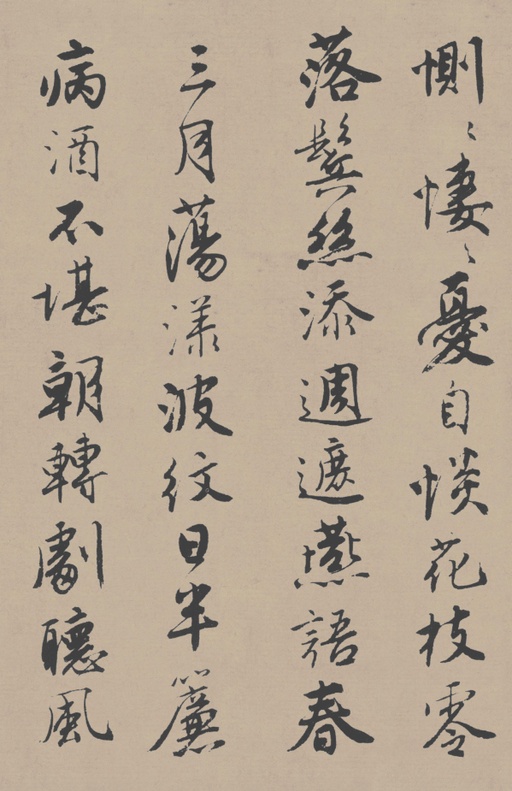 惻〻悽〻憂自惔花枝零
落鬂絲添週遮燕語春
三月蕩漾波紋日半簾
病酒不堪朝轉劇聽風